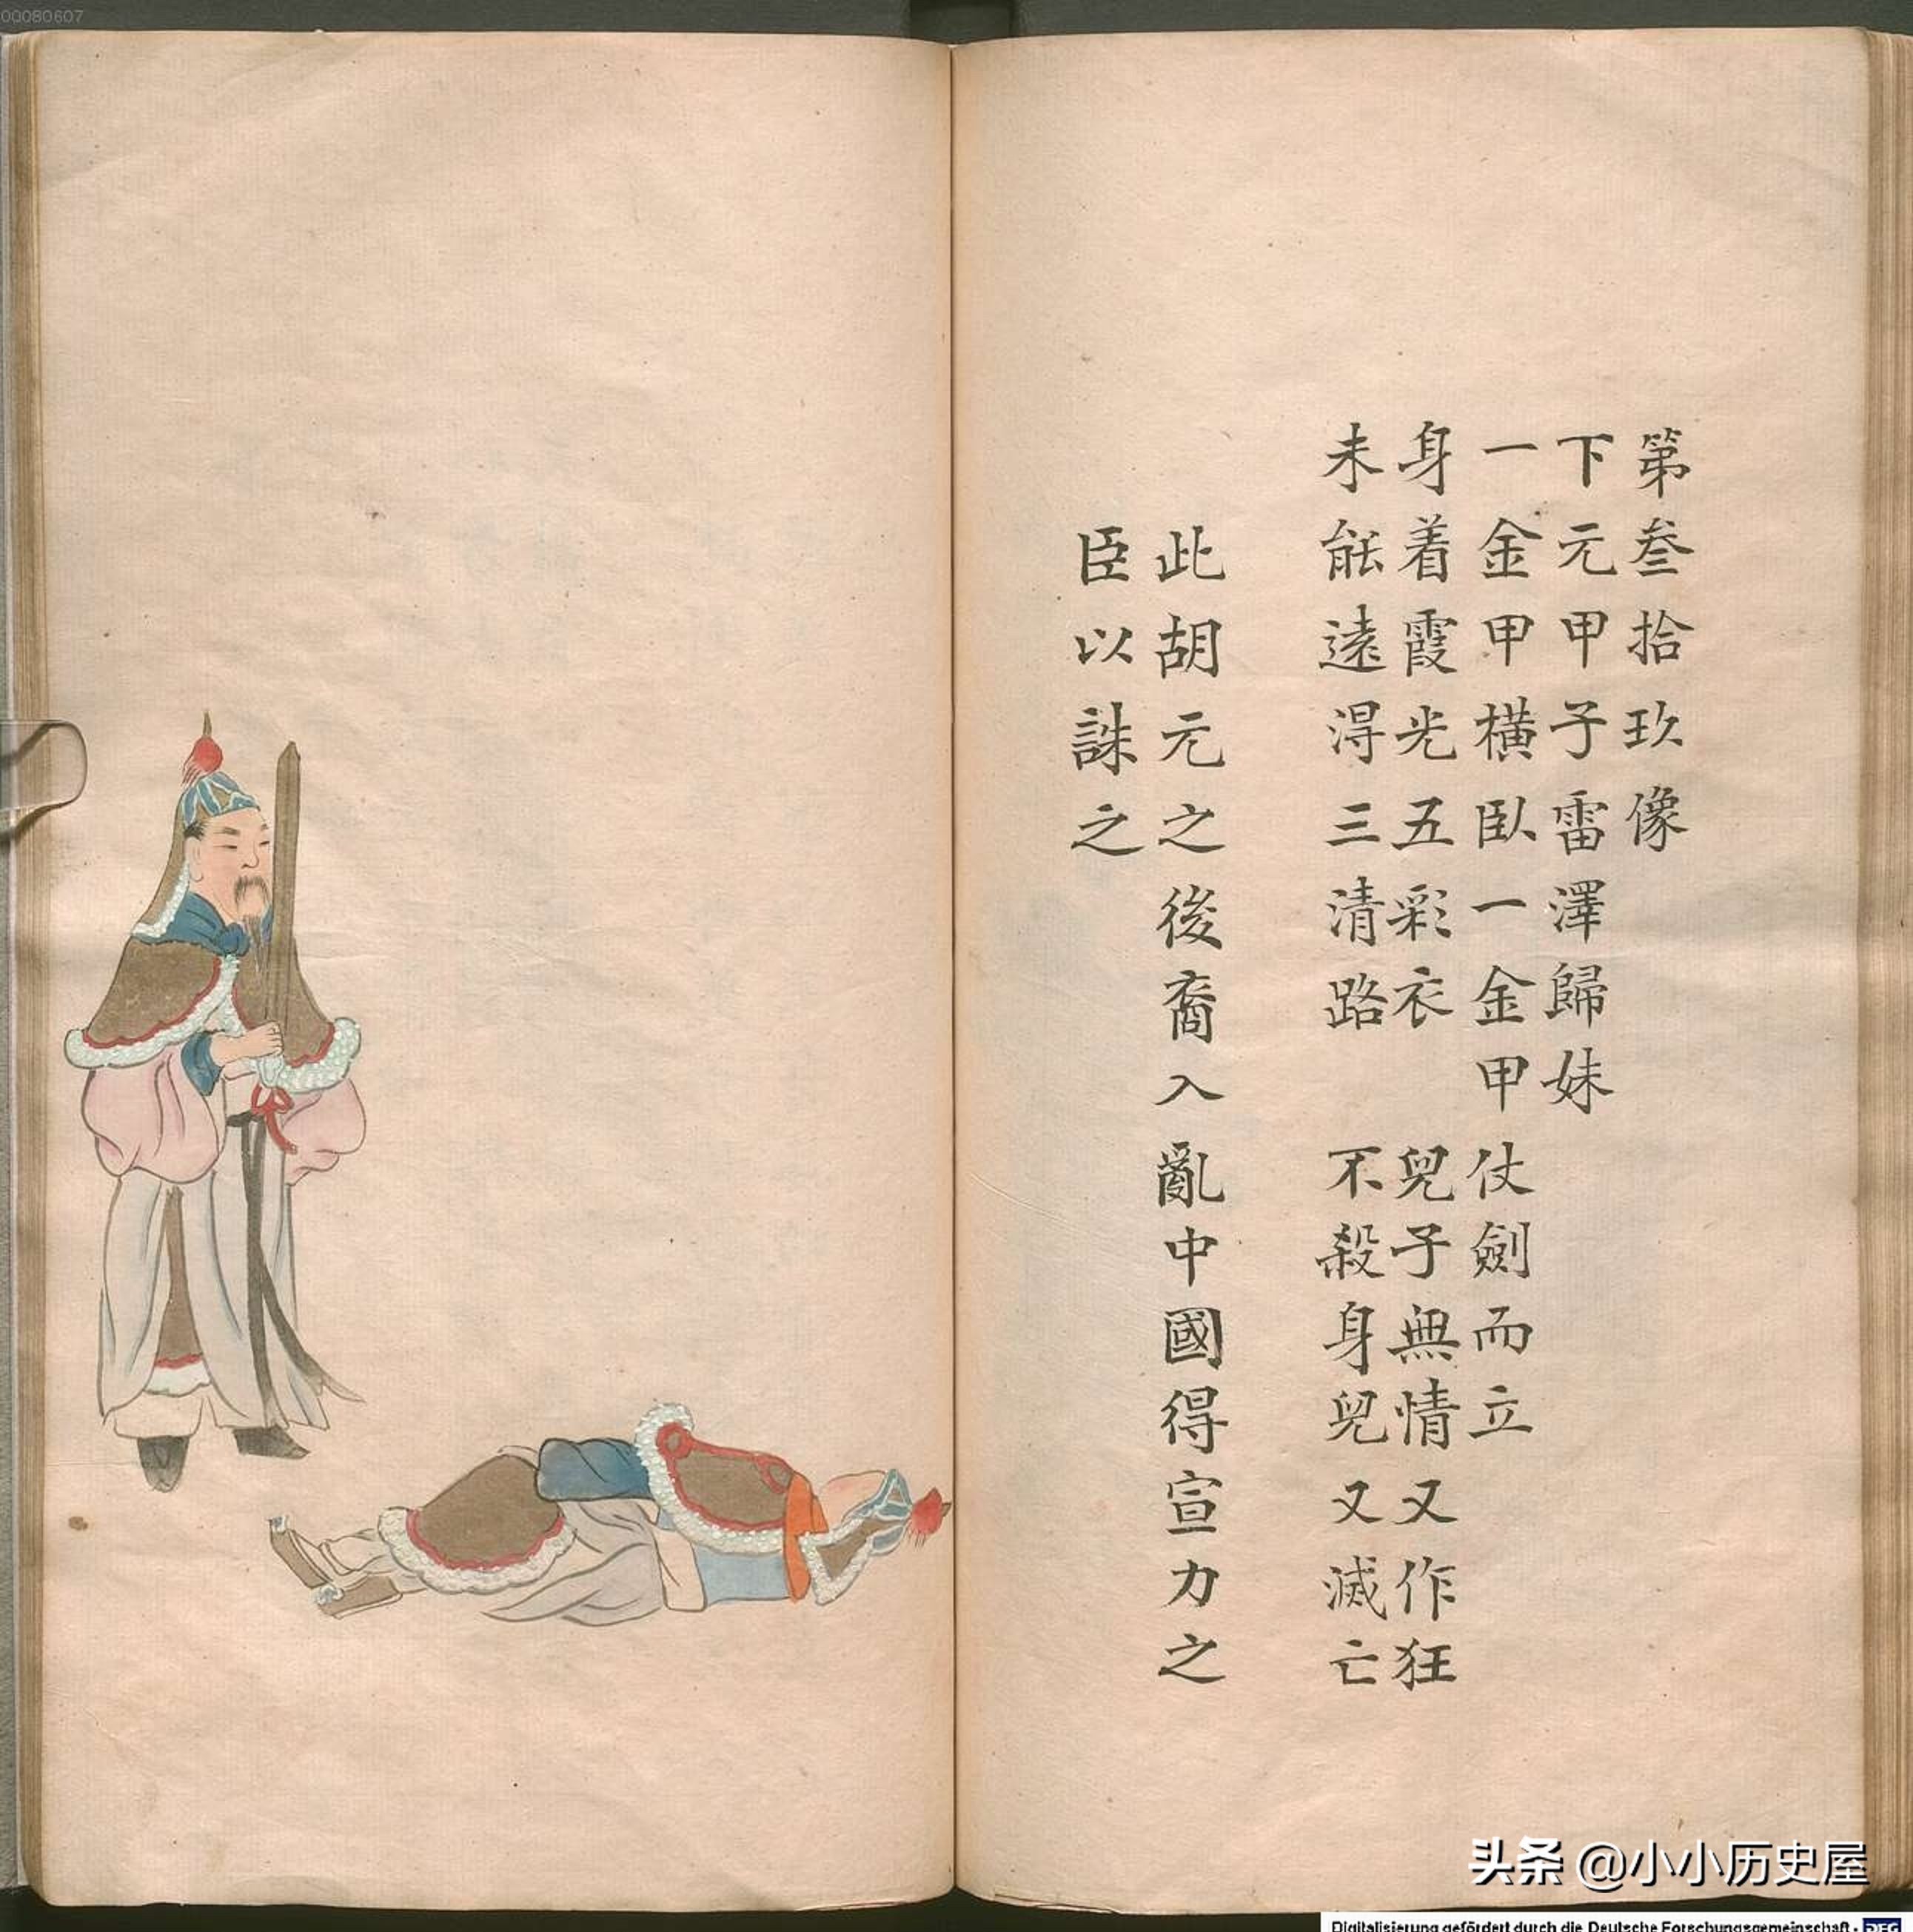 00080607
第叁拾玖像
下元甲子雷澤歸妹
一金甲橫臥一金甲仗劍而立
身着霞光五彩衣 兒子無情又作狂
未能遠得三清路 不殺身兒又滅亡
此胡元之後裔入亂中國得宣力之
臣以誅之
头条 @小小历史屋
Digitalisierung gefördert durch die Deutsche Forschungsgemeinschaft · DFG